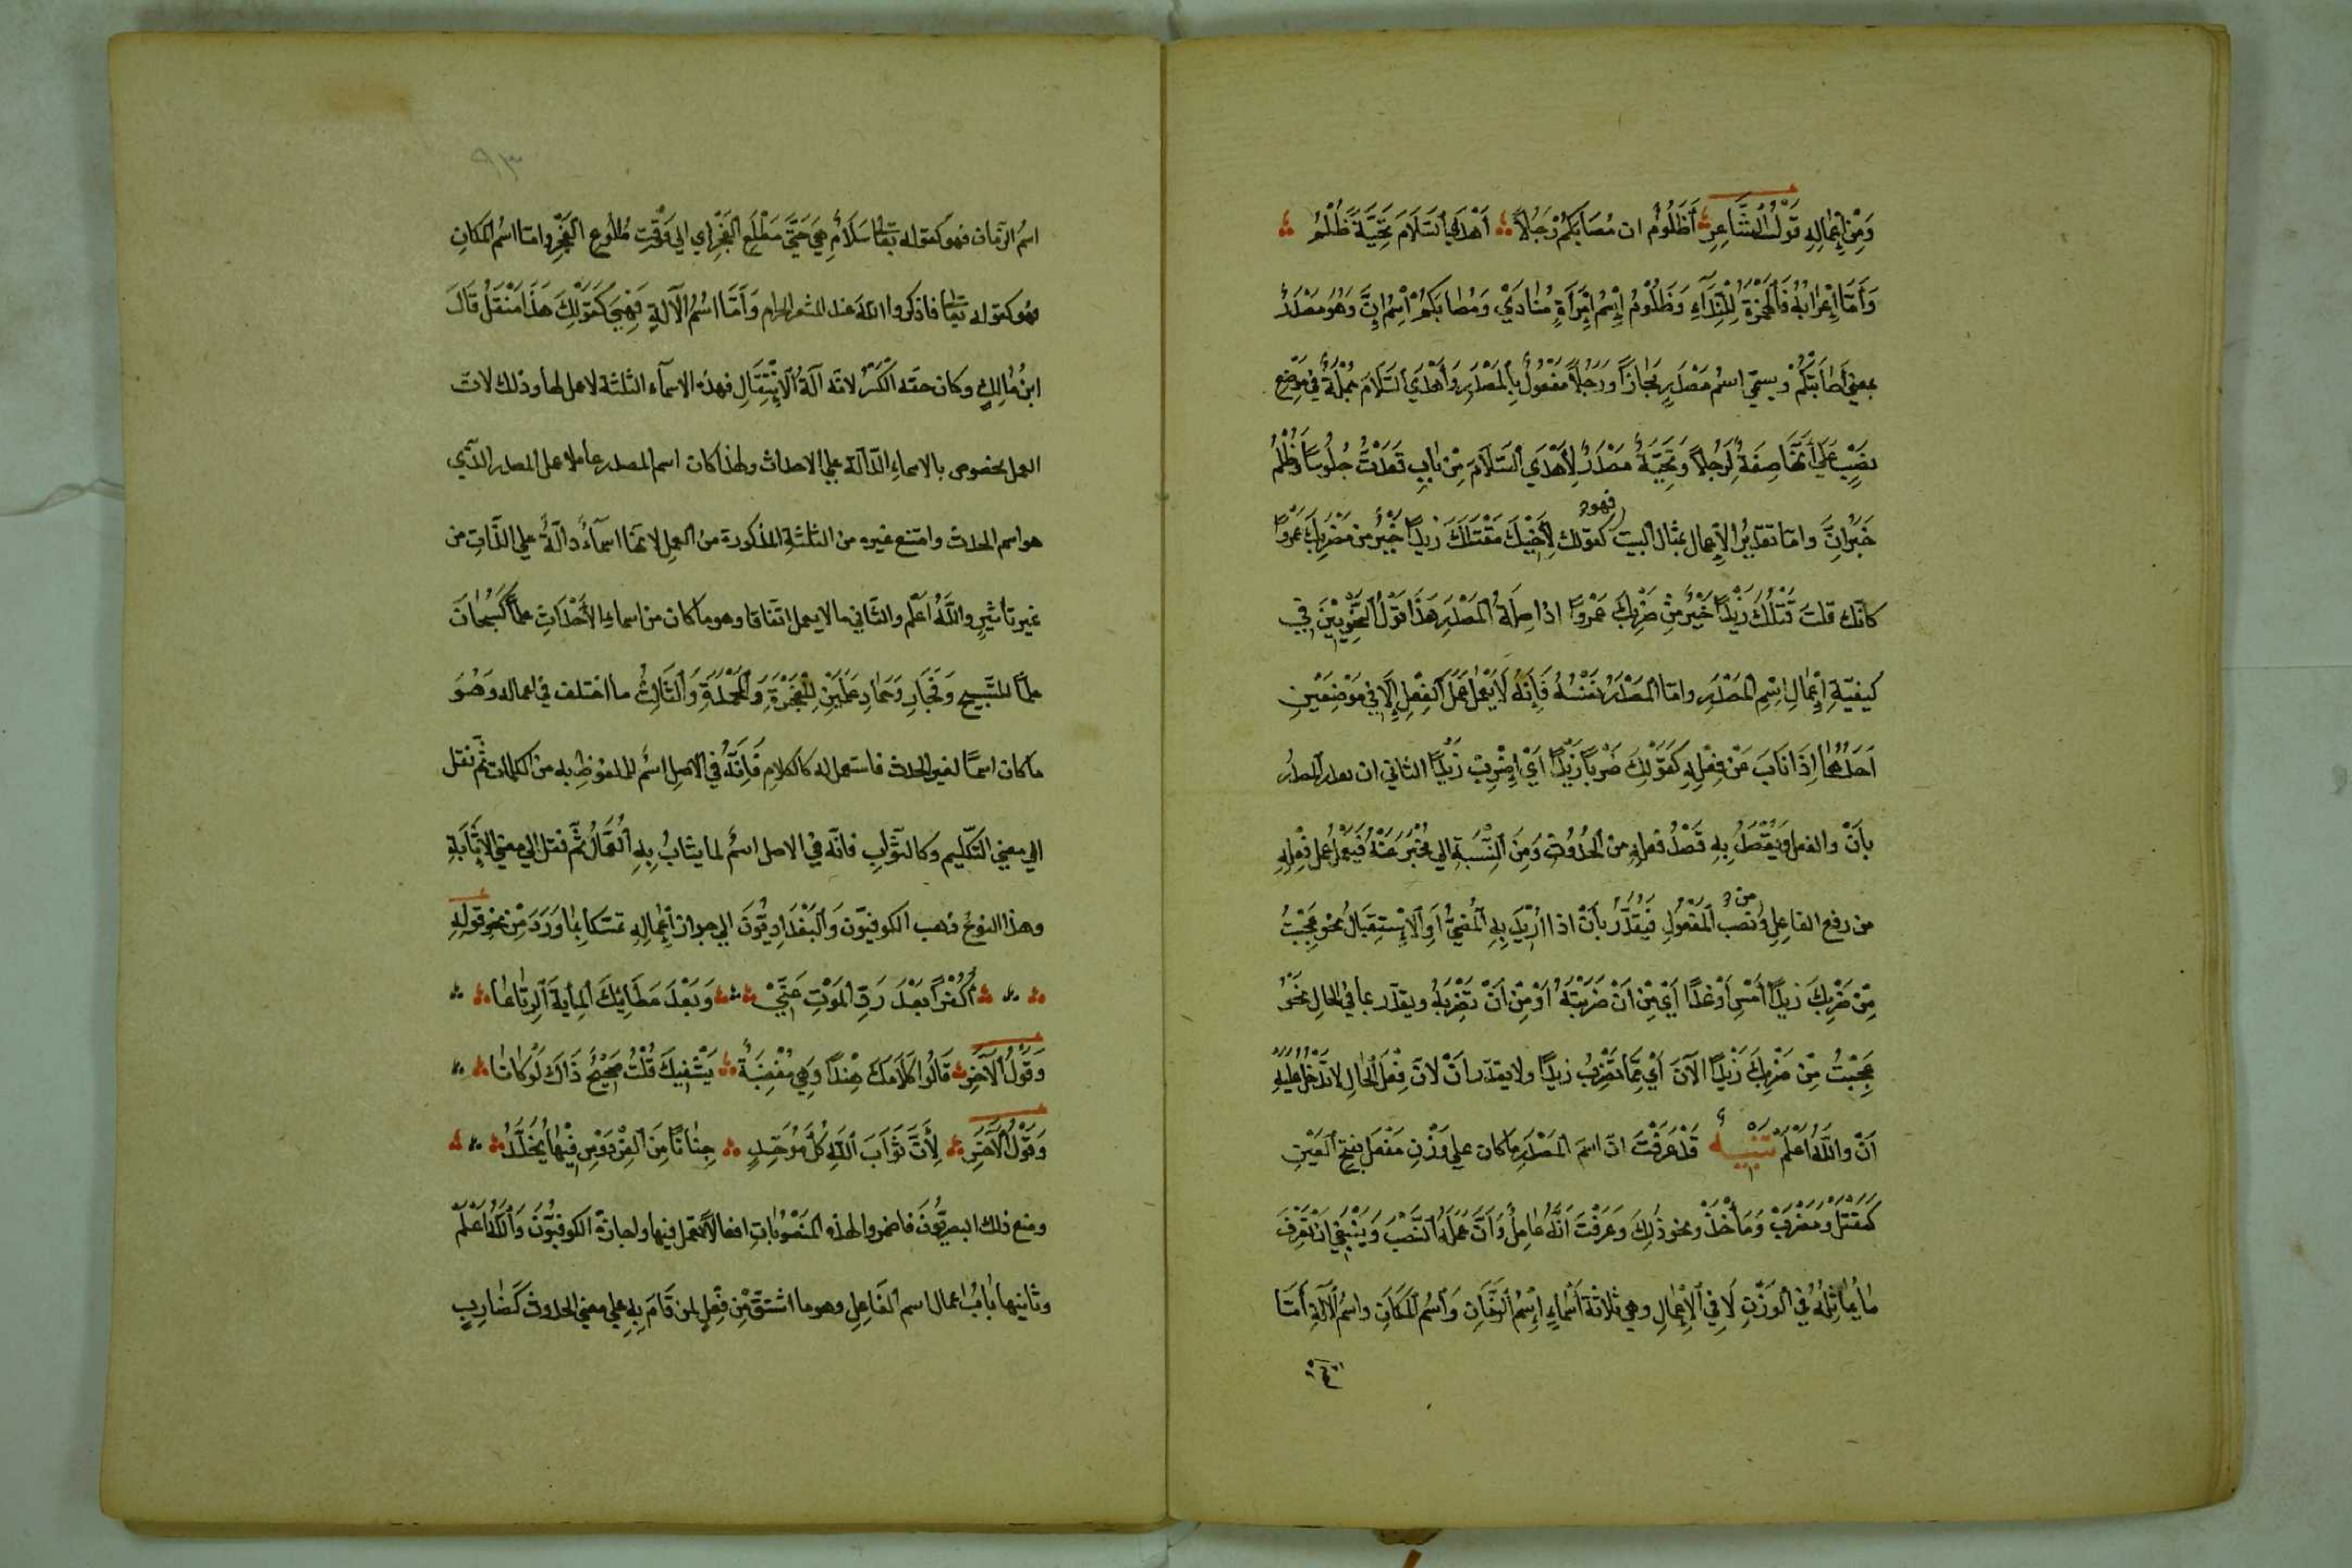 وَمِنْ إِعْمَالِهِ قَوْلُ الشَّاعِرِ أَظَلُومُ ان مُصَابَكُمْ رَجُلًا أَهْدَي السَّلَامَ تَحِيَّةً ظُلْمُ
وَأَمَّا إِعْرَابُهُ فَالْهَمْزَةُ لِلنِّدَآءِ وَظَلُوْمُ إِسْمُ امْرَأَةٍ مُنَادَيْ وَمُصَابَكُمْ اسْمُ إِنَّ وَهُوَ مَصْدَرٌ
بمعني أَصَابَتكُمْ ويسمّي اسْمُ مَصْدَرٍ مَجَازًا وَرَجُلًا مَفْعُولٌ بِالْمَصْدَرِ وَأَهْدَي السَّلَامَ جُمْلَةٌ فِي مَوْضِعِ
نصْبٍ عَلَي أَنَّهَا صِفَةٌ لِرَجُلًا وَتَحِيَّةً مَصْدَرٌ لِأَهْدَي السَّلَامَ مِنْ بَابِ قَعَدْتُ جُلُوسًا وَظُلْمُ
خَبَرُ انَّ وامّا تقديرُ الإِعمال بمثال البيت فهو كقولك لِأَخِيْكَ مَقْتَلَكَ زيدًا خَيْرٌ من مَضْرَبِكَ عَمْروًا
كانّك قلتَ قَتْلُكَ زَيْدًا خَيْرٌ مِنْ ضَرْبِكَ عَمْروًا اذا صِلَةُ الْمَصْدَرِ هَذَا قَوْلُ النَّحْوِيِّيْنَ فِي
كيفيّةِ إِعْمَالِ اسْمِ الْمَصْدَرِ وامّا الْمَصْدَرُ نَفْسُهُ فَإِنَّهُ لَا يَعْمَلُ عَمَلَ الْفِعْلِ إِلَّا فِي مَوْضِعَيْنِ
اَحَدُهُمَا إِذَا نَابَ عَنْ فِعْلِهِ كَقَوْلِكَ ضَرْبًا زَيْدًا أَيْ إِضْرِبْ زَيْدًا الثاني ان يقدر المصدرُ
بأَنْ والفعل وَيُقْصَدُ بِهِ قَصْدُ فعلِهِ من الْحُدُوثِ وَمِنَ النِّسْبَةِ الي مُخْبَرٍ عَنْهُ فَيَعْمَلُ عملَ فِعْلِهِ
من رفع الفاعِلِ ومن نصب الْمَفْعُولِ فَيُقَدَّرُ بأَنْ اذا أُرِيْدَ بِهِ الْمُضِيُّ أَوِ الْإِسْتِقْبَالُ نحو عَجِبْتُ
مِنْ ضَرْبِكَ زيدًا أَمْسِ أَوْ غدًا أَيْ مِنْ أَنْ ضَرَبْتَهُ أَوْ مِنْ أَنْ تَضْرِبَهُ ويقدّر بما في الحال نَحْوُ
عَجِبْتُ مِنْ ضَرْبِكَ زَيْدًا الآنَ أَيْ مِمَّا تَضْرِبُ زيدًا ولا يقدّر أَنْ لانّ فِعْلَ الْحَالِ لا تَدْخُلُ عليهِ
أَنْ وَاللَّهُ أَعْلَمُ تَنْبِيهٌ قَدْ عَرَفْتَ انّ اسمَ الْمَصْدَرِ ما كان علي وَزْنِ مَفْعَلٍ بفتح العَيْنِ
كَمَقْتَلٍ وَمَضْرَبٍ وَمَأْخَذٍ ونحو ذَلِكَ وَعَرَفْتَ انَّهُ عَامِلٌ وَأَنَّ عَمَلَهُ النَّصْبَ وَيَنْبَغِي أَنْ تَعْرِفَ
مَا يُمَاثِلُهُ فِي الْوَزْنِ لَا فِي الْإِعْمَالِ وهي ثلاثة أَسْمَاءٍ إِسْمُ الزَّمَانِ وَاسْمُ الْمَكَانِ واسْمُ الْآلَةِ أمّا
اسمُ الزّمان فهو كقوله تعالي سَلَامٌ هِيَ حَتَّي مَطْلَعِ الْفَجْرِ أي الي وَقْتِ طُلُوعِ الْفَجْرِ وامّا اسْمُ الْمَكَانِ
فهُو كقوله تعالي فاذكروا اللّهَ عند المشعر الحرام وَأَمَّا اسْمُ الْآلَةِ فَهِيَ كَقَوْلِكَ هَذَا مَنْقَلُ قَالَ
ابنُ مَالِكٍ وكان حقّه الْكَسْرُ لانّه آلَةُ الْإِنْتِقَالِ فهذه الاسمآء الثلثة لا عمل لها وذلك لانّ
العمل مخصوص بالاسماءِ الدّآلّة علي الاحداث ولهذا كان اسم المصدر عاملا عمل المصدر الّذي
هو اسم الحدث وامتنع غيره من الثلثةِ المذكورة من العمل لانّها اسمآءٌ دآلّةٌ علي الذّاتِ من
غير تأثيرٍ واللَّهُ اعلم والثّاني ما لا يعمل اتّفاقا وهو ما كان من اسماءِ الْأَحْدَاثِ علمًا كَسُبْحَانَ
علمًا للتّسبيح وَفَجَارِ وَحَمَادِ عَلَمَيْنِ لِلْفَجْرَةِ وَالْمَحْمَدَةِ وَالثَّالِثُ ما اختلف في اعماله وَهُوَ
ما كان اسمًا لغير الحدث فاستعمل له كالكلامِ فَإِنَّهُ فِي الْأَصْلِ اسْمٌ للملفوظِ به من الكلمات ثمّ نقل
الي معني التّكليم وكالثّواب فانّه في الاصل اسمٌ لما يثابُ بِهِ الْعُمَّالُ ثُمَّ نقل الي معني الْإِثَابَةِ
وهذا النوعُ ذهب الكوفيّون وَالْبَغْدَادِيُّونَ الي جواز إِعْمَالِهِ تمسّكا بِمَا وَرَدَ مِنْ نحو قولِهِ
أَكُفْرًا بَعْدَ رَدِّ الْمَوْتِ عَنِّيْ وَبَعْدَ عَطَائِكَ الْمِايةَ الرِّتَاعَا
وَقَوْلُ الْآخَرِ قَالُوا كَلَامُكَ هِنْدًا وَهِيَ مُصْغِيَةٌ يَشْفِيكَ قُلْتُ صَحِيْحٌ ذَاكَ لَوْ كَانَا
وَقَوْلُ الْآخَرِ لِأَنَّ ثَوَابَ اللَّهِ كُلَّ مُوَحِّدٍ جِنَانًا مِنَ الْفِرْدَوْسِ فِيْهَا يُخَلَّدُ
ومنع ذلك البصريُّونَ فاضمروا لهذه الْمَنْصُوبَاتِ افعالاً تعمل فيها واجازهُ الكوفيُّونَ وَاللَّهُ أَعْلَمُ
وثانيها بَابُ اعمال اسم الفَاعِلِ وهو ما اشتقّ مِنْ فِعْلٍ لمن قَامَ بِهِ علي معني الحدوث كَضَارِبٍ